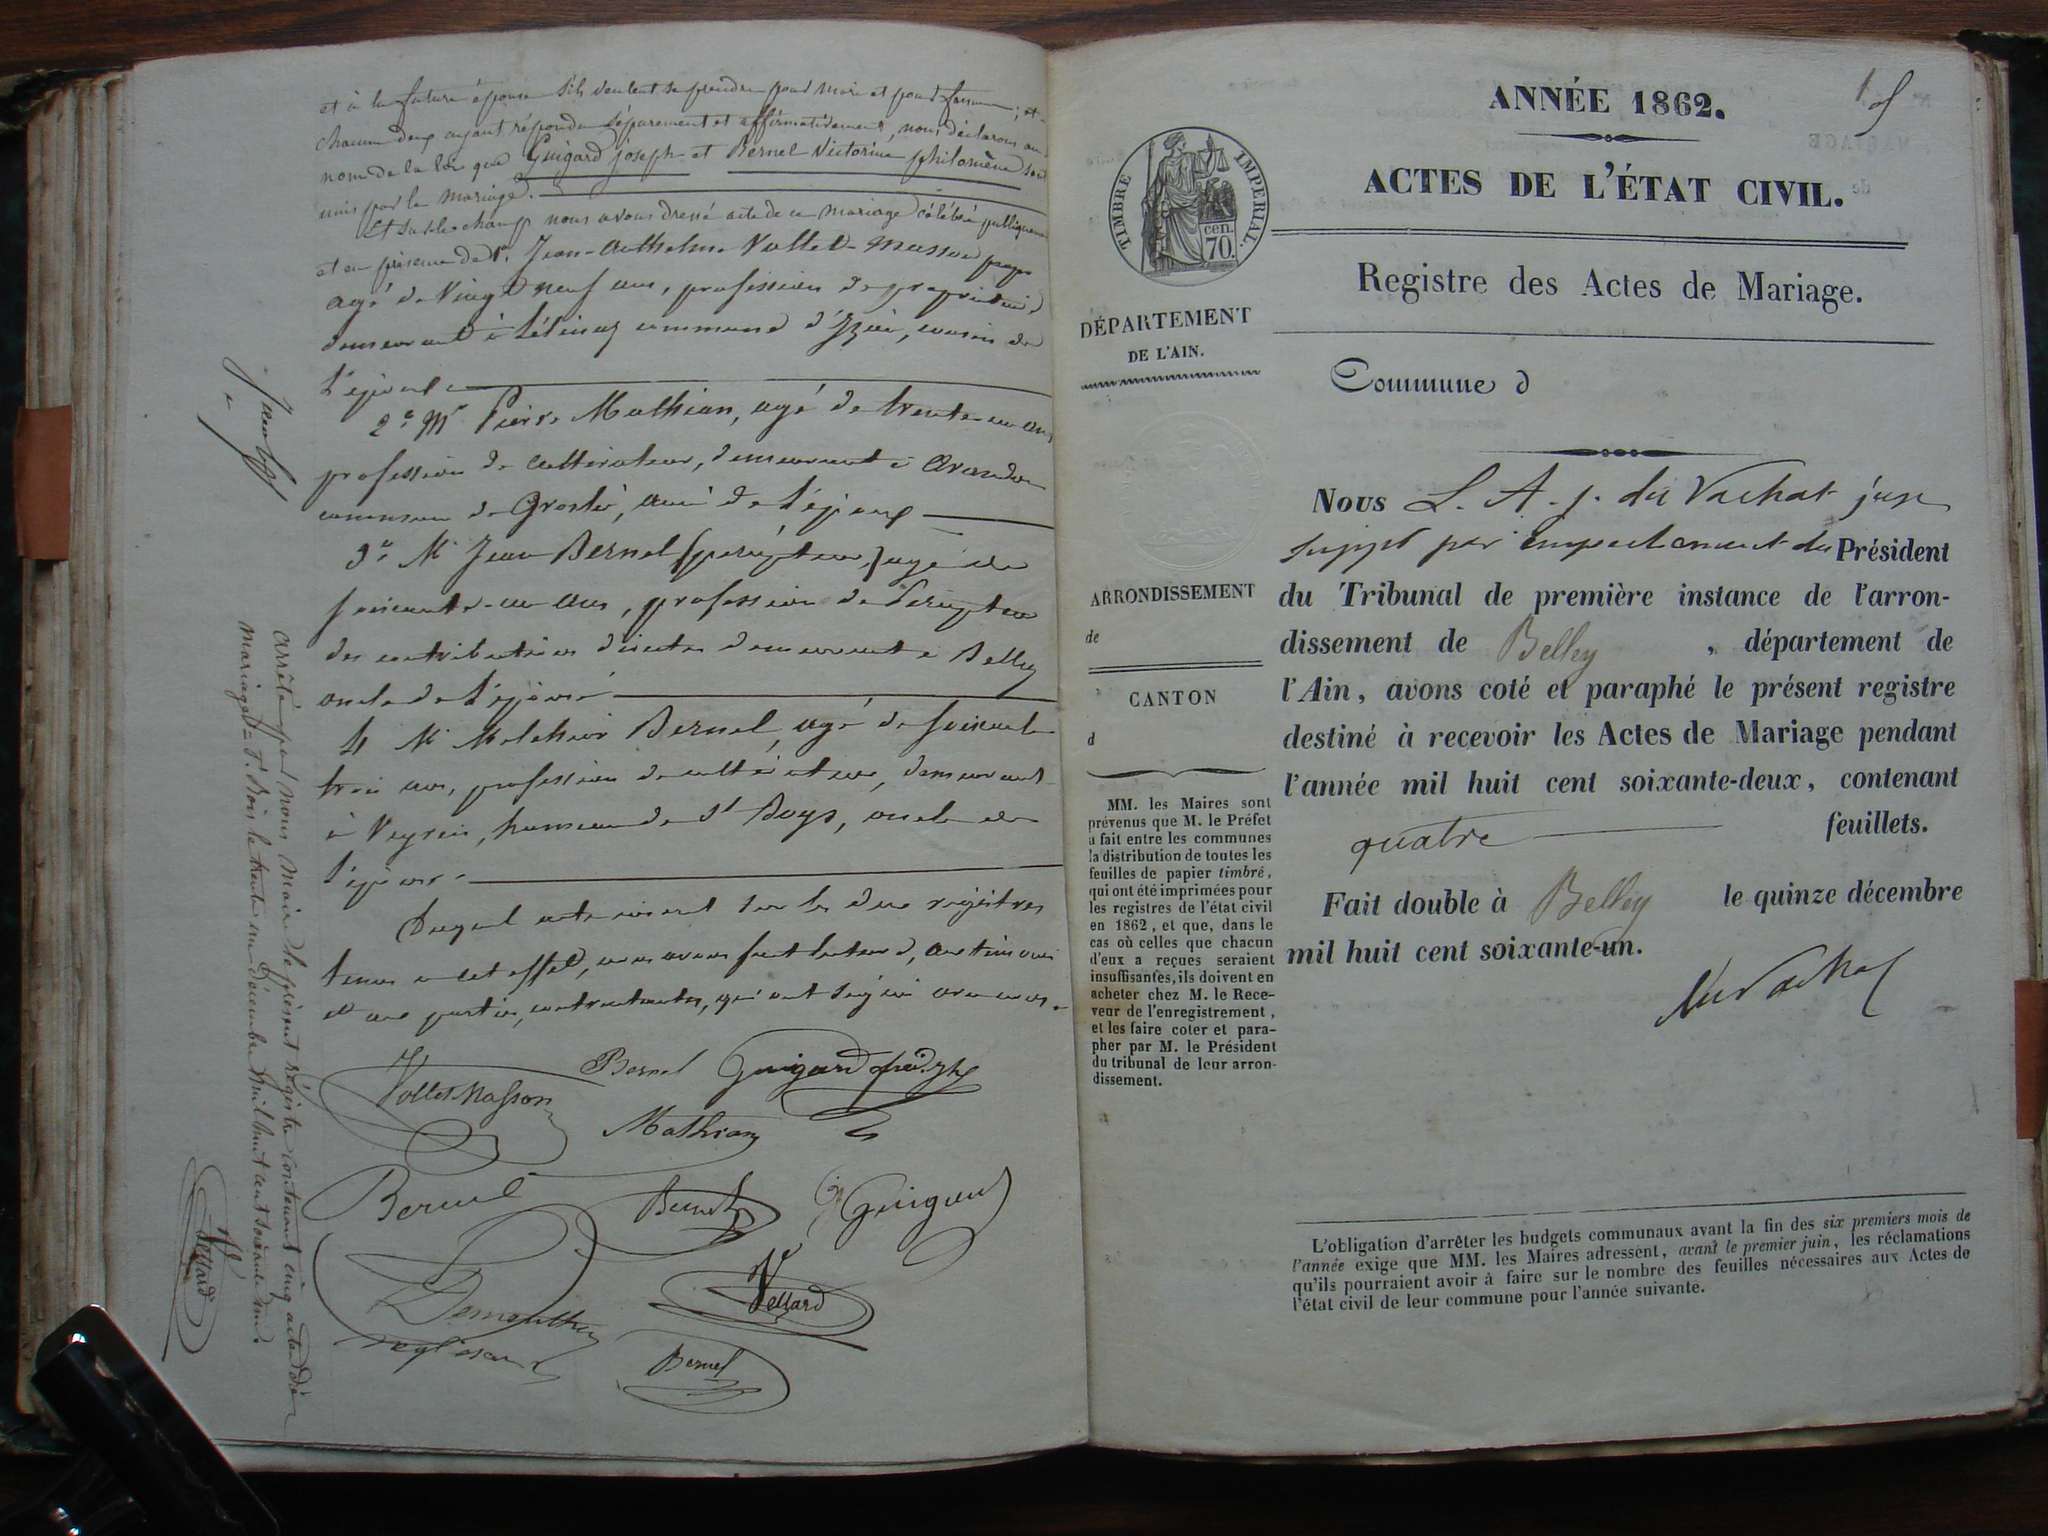 et à la future épouse s'ils veulent se prendre pour mari et pour femme; et
chacun deux ayant répondu séparement et affirmativement, nous déclarons au
nom de la loi que Guigard joseph et Bernel Victorine philomène sont
unis par le mariage.
Et sur le champ nous avons dressé acte de ce mariage célébré publiquement
et en présence de 1° Jean-Anthelme Vollet-Masson
agé de vingt neuf ans, profession de propriétaire
demeurant à commune d'Izieu, cousin de
l'épouse
2° Mr Pierre Mathian, agé de trente-un ans
profession de cultivateur, demeurant à Arandon
commune de Groslée, ami de l'époux
3° Mr Jean Bernel (percepteur) agé de
soixante-un ans, profession de Percepteur
des contributions directes demeurant à Belley
oncle de l'épouse
4 Mr Melchior Bernel, agé de soixante
trois ans, profession de cultivateur, demeurant
à Veyrin, hameau de St Boys, oncle de
l'épouse
Duquel acte inscrit sur les deux registres
tenus à cet effet, nous avons fait lecture, aux témoins
et aux parties contractantes, qui ont signé avec nous.
Vollet Masson
Bernel
Guigard
Mathian
Bernel
Bernel
Guigard
Vellard
Bernel
arrêté par nous maire le présent régistre contenant cinq actes de
mariage = St Bois le trente un décembre mil huit cent soixante un.
Vellard
ANNÉE 1862.
1
ACTES DE L'ÉTAT CIVIL.
TIMBRE IMPERIAL.
cen.
70.
Registre des Actes de Mariage.
DÉPARTEMENT
DE L'AIN.
Commune d
ARRONDISSEMENT
de
CANTON
d
MM. les Maires sont
prévenus que M. le Préfet
a fait entre les communes
la distribution de toutes les
feuilles de papier timbré,
qui ont été imprimées pour
les registres de l'état civil
en 1862, et que, dans le
cas où celles que chacun
d'eux a reçues seraient
insuffisantes, ils doivent en
acheter chez M. le Rece-
veur de l'enregistrement,
et les faire coter et para-
pher par M. le Président
du tribunal de leur arron-
dissement.
Nous L. A. j. du Vachat juge
suppt par empechement du Président
du Tribunal de première instance de l'arron-
dissement de Belley, département de
l'Ain, avons coté et paraphé le présent registre
destiné à recevoir les Actes de Mariage pendant
l'année mil huit cent soixante-deux, contenant
quatre feuillets.
Fait double à Belley le quinze décembre
mil huit cent soixante-un.
du Vachat
L'obligation d'arrêter les budgets communaux avant la fin des six premiers mois de
l'année exige que MM. les Maires adressent, avant le premier juin, les réclamations
qu'ils pourraient avoir à faire sur le nombre des feuilles nécessaires aux Actes de
l'état civil de leur commune pour l'année suivante.